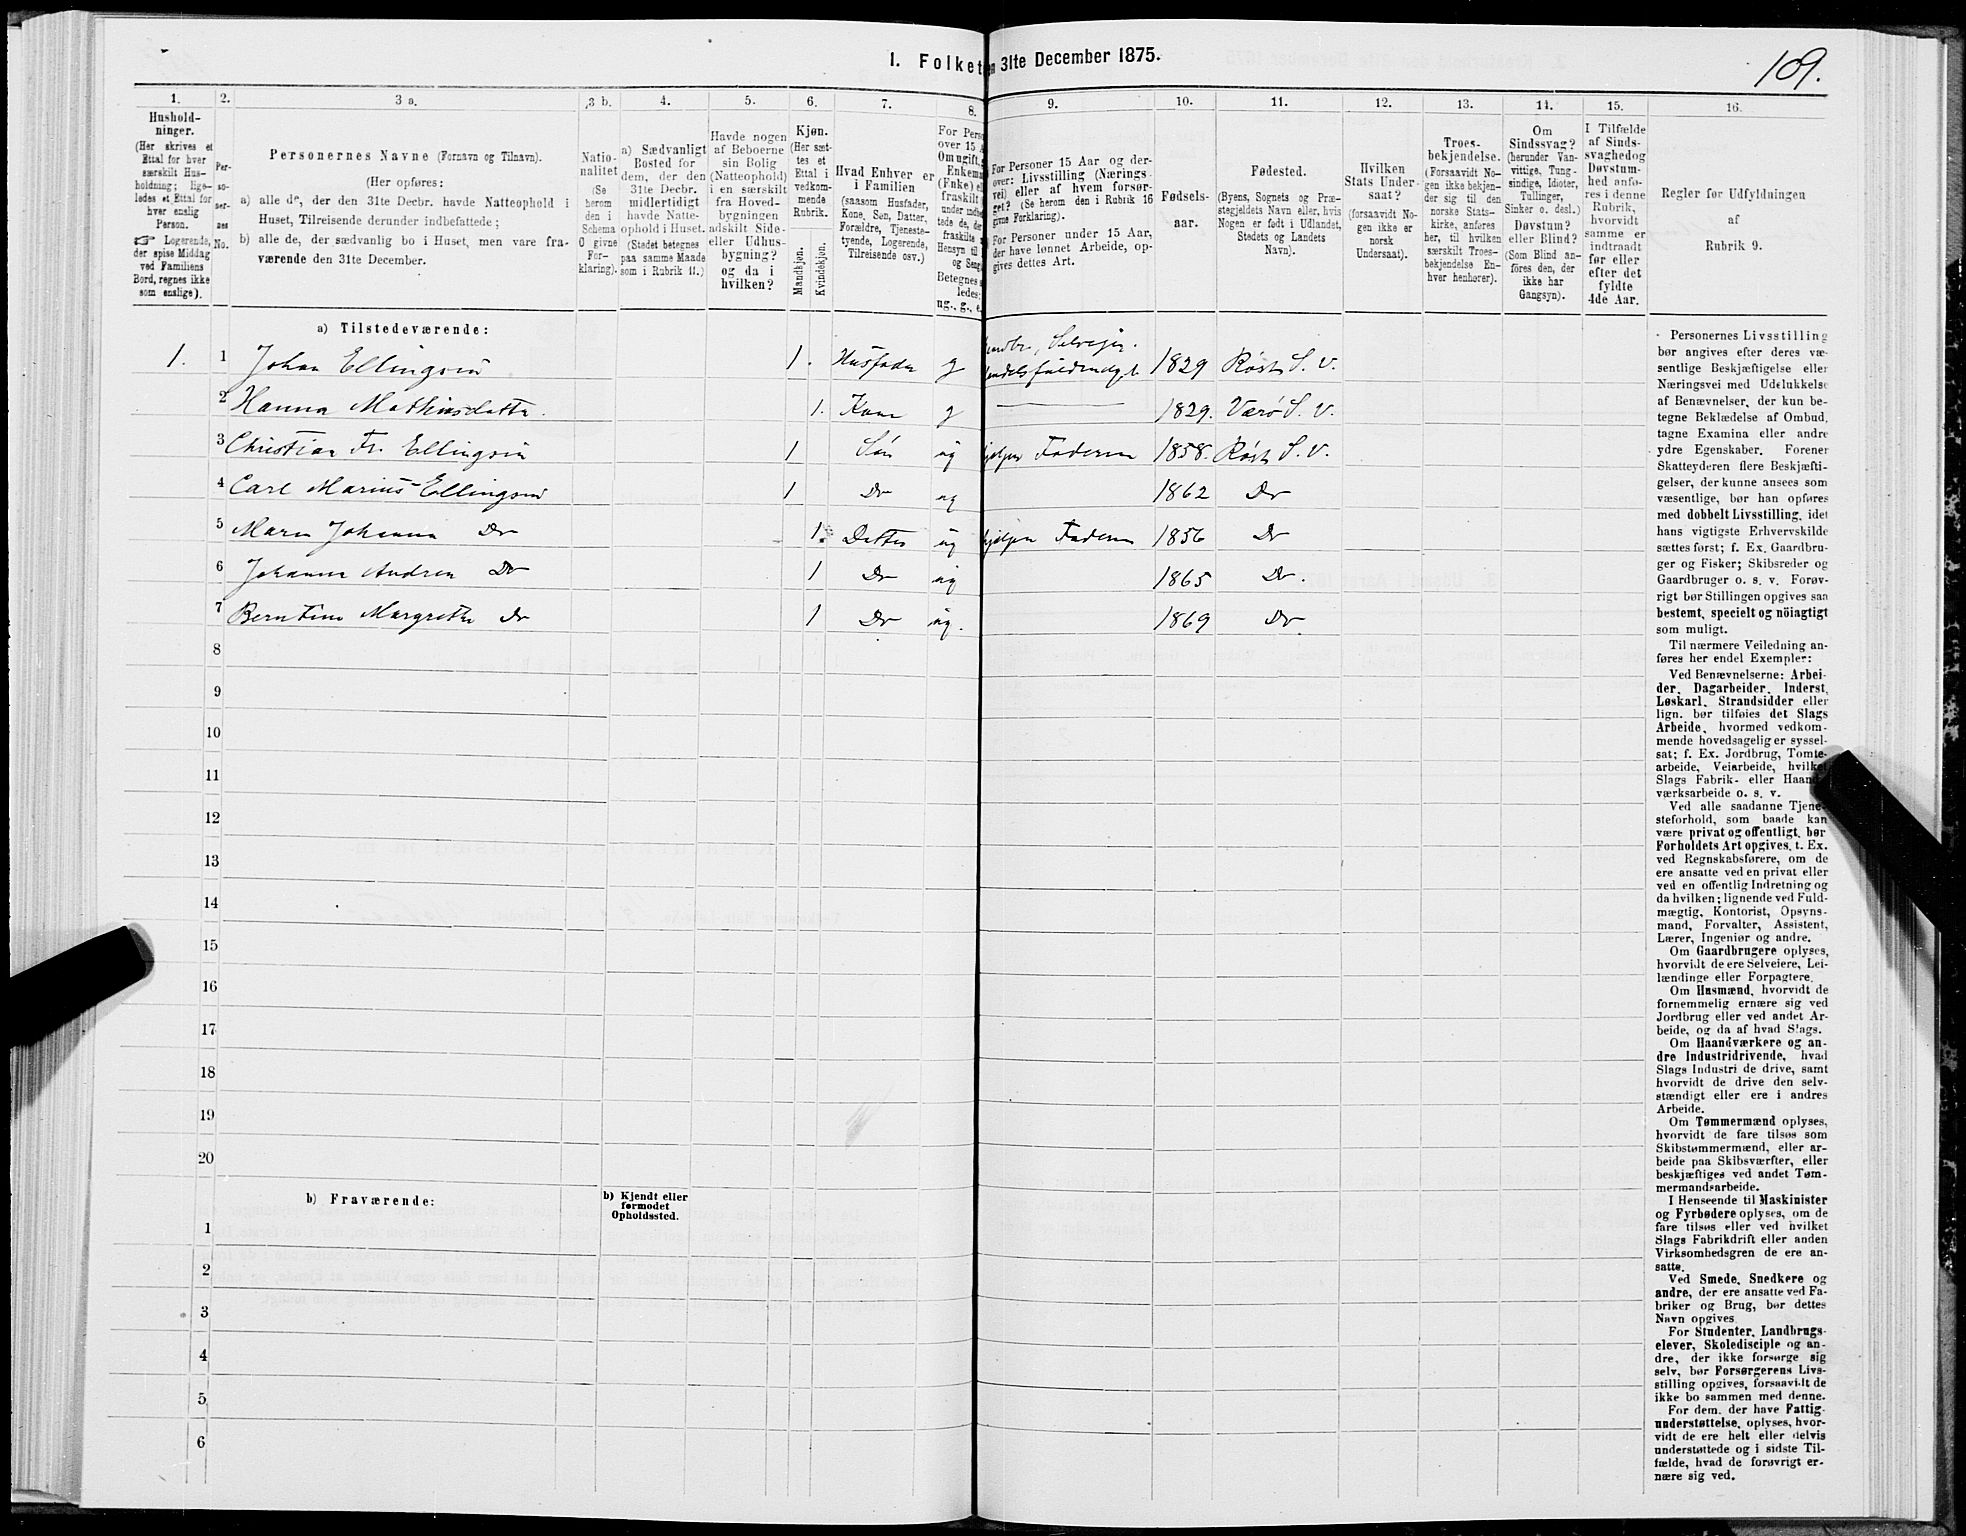 1. Folket
en 31te December 1875.
109.
1. 2. 3 a. 3 b. 4. 5. 6. 7. 8. 9. 10. 11. 12. 13. 14. 15. 16.
Hushold-
ninger.
(Her skrives et
Ettal for hver
særskilt Hus-
holdning; lige-
ledes et Ettal for
hver enslig
Person.
☞ Logerende,
der spise Middag
ved Familiens
Bord, regnes ikke
som enslige).
Per-
so-
ner-
nes
No.
Personernes Navne (Fornavn og Tilnavn).
(Her opføres:
a) alle de, der den 31te Decbr. havde Natteophold i
Huset, Tilreisende derunder indbefattede;
b) alle de, der sædvanlig bo i Huset, men vare fra-
værende den 31te December.
Natio-
nalitet
(Se
herom
den i
Schema
O givne
For-
klaring).
a) Sædvanligt
Bosted for
dem, der den
31te Decbr.
midlertidigt
havde Natte-
ophold i Huset.
(Stedet betegnes
paa samme Maade
som i Rubrik 11.)
Havde nogen
af Beboerne
sin Bolig
(Natteophold)
i en særskilt
fra Hoved-
bygningen
adskilt Side-
eller Udhus-
bygning?
og da i
hvilken?
Kjøn.
(Her sæt-
tes et
Ettal i
vedkom-
mende
Rubrik.
Mandkjøn.
Kvindekjøn.
Hvad Enhver er
i Familien
(saasom Husfader,
Kone, Søn, Datter,
Forældre, Tjeneste-
tyende, Logerende,
Tilreisende osv.)
For Perso
over 15 A
Om ugift,
Enkem
(Enke) e
fraskilt
under indbe
tede de, der
fraskilte
Hensyn til
og Seng
Betegnes
ledes:
ug., g., e.
For Personer 15 Aar og der-
over: Livsstilling (Nærings-
vei) eller af hvem forsør-
get? (Se herom den i Rubrik 16
givne Forklaring).
For Personer under 15 Aar,
der have lønnet Arbeide, op-
gives dettes Art.
Fødsels-
aar.
Fødested.
(Byens, Sognets og Præ-
stegjeldets Navn eller, hvis
Nogen er født i Udlandet,
Stedets og Landets
Navn).
Hvilken
Stats Under-
saat?
(forsaavidt No-
gen ikke er
norsk
Undersaat).
Troes-
bekjendelse.
(Forsaavidt No-
gen ikke bekjen-
der sig til den
norske Stats-
kirke, anføres
her, til hvilken
særskilt Troes-
bekjendelse En-
hver henhører).
Om
Sindssvag?
(herunder Van-
vittige, Tung-
sindige, Idioter,
Tullinger,
Sinker o. desl.)
Døvstum?
eller Blind?
(Som Blind an-
føres den, der
ikke har
Gangsyn).
I Tilfælde
af Sinds-
svaghed og
Døvstum-
hed anfø-
res i denne
Rubrik,
hvorvidt
samme er
indtraadt
før eller
efter det
fyldte
4de Aar.
Regler for Udfyldningen
af
Rubrik 9.
a) Tilstedeværende:
1. 1 Johan Ellingsen 1. Husfader g Selveier. 1829 Røst S. V.
2 Hanna Mathiasdatter. 1. Kone g 1829. Værø S. V.
3 Christian Fr. Ellingsen 1 Søn ug hjelper Faderen 1858. Røst S. V.
4 Carl Marius Ellingsen 1 Do ug 1862 Do
5 Maren Johanna Do 1. Datter ug hjelper Faderen 1856 Do
6 Johanna Andrea Do 1 Do ug 1865 Do.
7 Berntine Margrethe Do 1 Do ug. 1869 Do
8
9
10
11
12
13
14
15
16
17
18
19
20
b) Fraværende:
b) Kjendt eller
formodet
Opholdssted.
1
2
3
4
5
6
Personernes Livsstilling
bør angives efter deres væ-
sentlige Beskjæftigelse eller
Næringsvei med Udelukkelse
af Benævnelser, der kun be-
tegne Beklædelse af Ombud,
tagne Examina eller andre
ydre Egenskaber. Forener
Skatteyderen flere Beskjæfti-
gelser, der kunne ansees som
væsentlige, bør han opføres
med dobbelt Livsstilling, idet
hans vigtigste Erhvervskilde
sættes først; f. Ex. Gaardbru-
ger og Fisker; Skibsreder og
Gaardbruger o. s. v. Forøv-
rigt bør Stillingen opgives saa
bestemt, specielt og nöiagtigt
som muligt.
Til nærmere Veiledning an-
føres her endel Exempler:
Ved Benævnelserne: Arbei-
der, Dagarbeider, Inderst,
Løskarl, Strandsidder eller
lign. bør tilføies det Slags
Arbeide, hvormed vedkom-
mende hovedsagelig er syssel-
sat; f. Ex. Jordbrug, Tomte-
arbeide, Veiarbeide, hvilket
Slags Fabrik- eller Haand-
værksarbeide o. s. v.
Ved alle saadanne Tjene-
steforhold, som baade kan
være privat og offentligt, bør
Forholdets Art opgives, t. Ex.
ved Regnskabsførere, om de
ere ansatte ved en privat eller
ved en offentlig Indretning og
da hvilken; lignende ved Fuld-
mægtig, Kontorist, Opsyns-
mand, Forvalter, Assistent,
Lærer, Ingeniør og andre.
Om Gaardbrugere oplyses,
hvorvidt de ere Selveiere, Lei-
lændinge eller Forpagtere.
Om Husmænd, hvorvidt de
fornemmelig ernære sig ved
Jordbrug eller ved andet Ar-
beide, og da af hvad Slags.
Om Haandværkere og an-
dre Industridrivende, hvad
Slags Industri de drive, samt
hvorvidt de drive den selv-
stændigt eller ere i andres
Arbeide.
Om Tømmermænd oplyses,
hvorvidt de fare tilsøs som
Skibstømmermænd, eller ar-
beide paa Skibsværfter, eller
beskjæftiges ved andet Tøm-
mermandsarbeide.
I Henseende til Maskinister
og Fyrbødere oplyses, om de
fare tilsøs eller ved hvilket
Slags Fabrikdrift eller anden
Virksomhedsgren de ere an-
satte.
Ved Smede, Snedkere og
andre, der ere ansatte ved Fa-
briker og Brug, bør dettes
Navn opgives.
For Studenter, Landbrugs-
elever, Skoledisciple og an-
dre, der ikke forsørge sig
selv, bør Forsørgerens Livs-
stilling opgives, forsaavidt de
ikke bo sammen med denne.
For dem, der have Fattig-
understøttelse, oplyses, hvor-
vidt de ere helt eller delvis
understøttede og i sidste Til-
fælde, hvad de forøvrigt er-
nære sig ved.